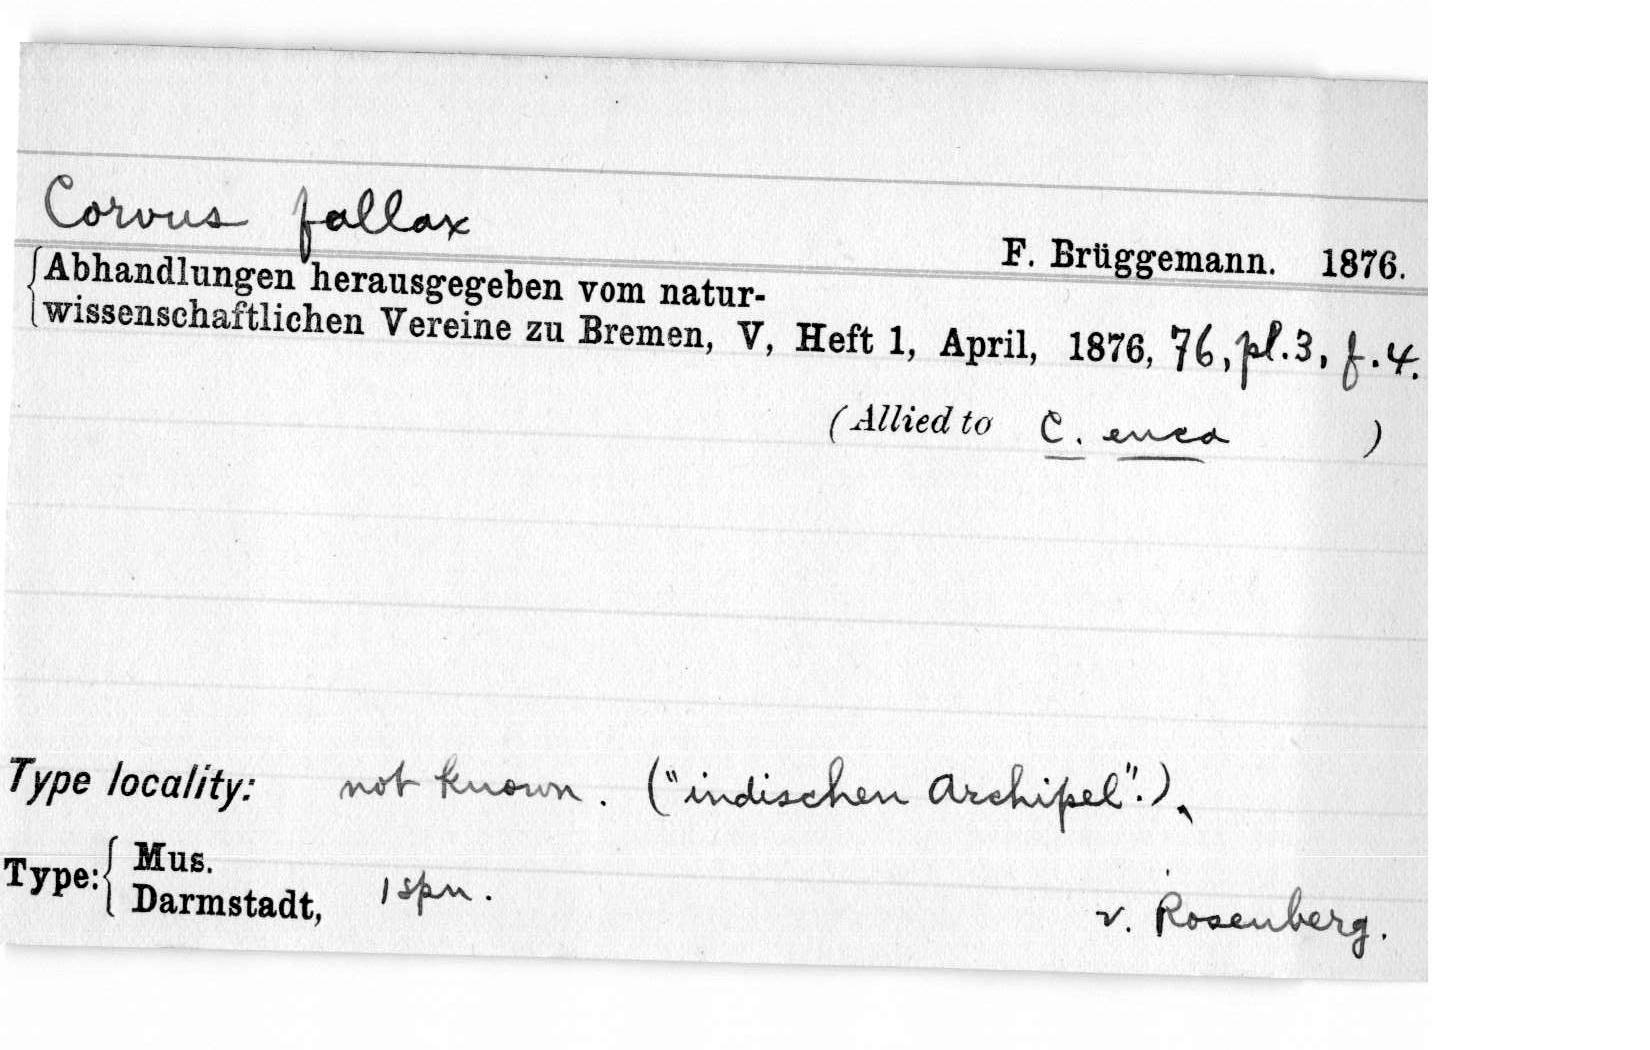 Corvus fallax
F. Brüggemann. 1876.
Abhandlungen herausgegeben vom natur-
wissenschaftlichen Vereine zu Bremen, V, Heft 1, April, 1876, 76, pl. 3, f. 4.
(Allied to C. enca )
Type locality: not known. ("indischen Archipel".)
Type: Mus. Darmstadt, 1 spn.
v. Rosenberg.